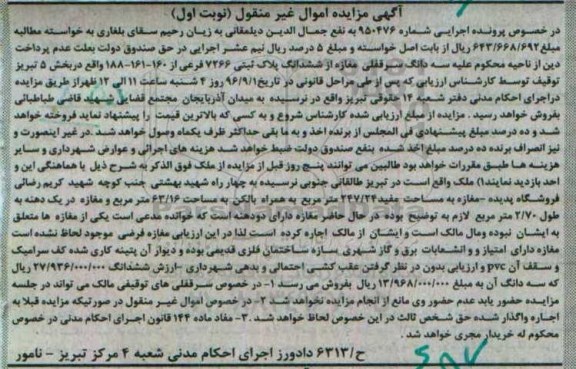 آگهی مزایده اموال غیر منقول (نوبت اول)
در خصوص پرونده اجرایی شماره ۹۵۰۴۷۶ به نفع جمال الدین دیلمقانی به زیان رحیم سقای بلغاری به خواسته مطالبه
مبلغ ۶۴۳/۶۶۸/۶۹۲ ریال از بابت اصل خواسته و مبلغ ۵ درصد ریال نیم عشر اجرایی در حق صندوق دولت بعلت عدم پرداخت
دین از ناحیه محکوم علیه سه دانگ سرقفلی مغازه از ششدانگ پلاک ثبتی ۷۲۶۶ فرعی از ۱۶۰-۱۶۱-۱۸۸ واقع دربخش ۵ تبریز
توقیف توسط کارشناس ارزیابی که پس از طی مراحل قانونی در تاریخ ۹۶/۹/۱ روز ۴ شنبه ساعت ۱۱ الی ۱۲ ظهراز طریق مزایده
دراجرای احکام مدنی دفتر شعبه ۴ حقوقی تبریز واقع در نرسیده به میدان آذربایجان مجتمع قضایی شهید قاضی طباطبائی
بفروش خواهد رسید . مزایده از مبلغ ارزیابی شده کارشناس شروع و به کسی که بالاترین قیمت را پیشنهاد نماید فروخته خواهد
شد و ده درصد مبلغ پیشنهادی فی المجلس از برنده اخذ و به ما بقی حداکثر ظرف یکماه وصول خواهد شد. در غیر اینصورت و
نیز انصراف برنده ده درصد مبلغ اخذ شده بنفع صندوق دولت ضبط خواهد شد هزینه های اجرائی و عوارض شهرداری و سایر
هزینه ها طبق مقررات خواهد بود طالبین می توانند پنج روز قبل از مزایده از ملک فوق الذکر به شرح ذیل با هماهنگی این و
احد بازدید نمایند۱) ملک واقع است در تبریز طالقانی جنوبی نرسیده به چهار راه شهید بهشتی جنب کوچه شهید کریم رضائی
فروشگاه پدیده -مغازه به مساحت مفید۲۴۷/۲۴ متر مربع به همراه بالکن به مساحت ۶۳/۱۶ متر مربع و مغازه در یک دهنه به
طول ۲/۷۰ متر مربع لازم به توضیح بوده در حال حاضر مغازه دارای دودهنه است که خوانده مدعی است یکی از مغازه ها متعلق
به ایشان نبوده ومال مالک است و ایشان از مالک اجاره کرده است لذا در این ارزیابی مغازه فرضی موجود لحاظ نشده است
مغازه دارای امتیاز و و انشعابات برق و گاز شهری سازه ساختمان فلزی قدیمی بوده و دیوار آن پتینه کاری شده کف سرامیک
و سقف آن pvc و ارزیابی بدون در نظر گرفتن عقب کشی احتمالی و بدهی شهرداری -ارزش ششدانگ ۲۷/۹۳۶/۰۰۰/۰۰۰ ریال
که سه دانگ آن به مبلغ ۱۳/۹۶۸/۰۰۰/۰۰۰ ریال بفروش می رسد ۱- در خصوص سرقفلی های توقیفی مالک می تواند در جلسه
مزایده حضور یابد عدم حضور وی مانع از انجام مزایده نخواهد شد ۲- در خصوص اموال غیر منقول در صورتیکه مزایده قبلا به
اجاره واگذار شده حق شخص ثالث در این خصوص لحاظ خواهد شد .۳- مفاد ماده ۱۴۴ قانون اجرای احکام مدنی در خصوص
محکوم له خریدار مجری خواهد شد .
ح/۶۳۱۳ دادورز اجرای احکام مدنی شعبه ۴ مرکز تبریز - نامور